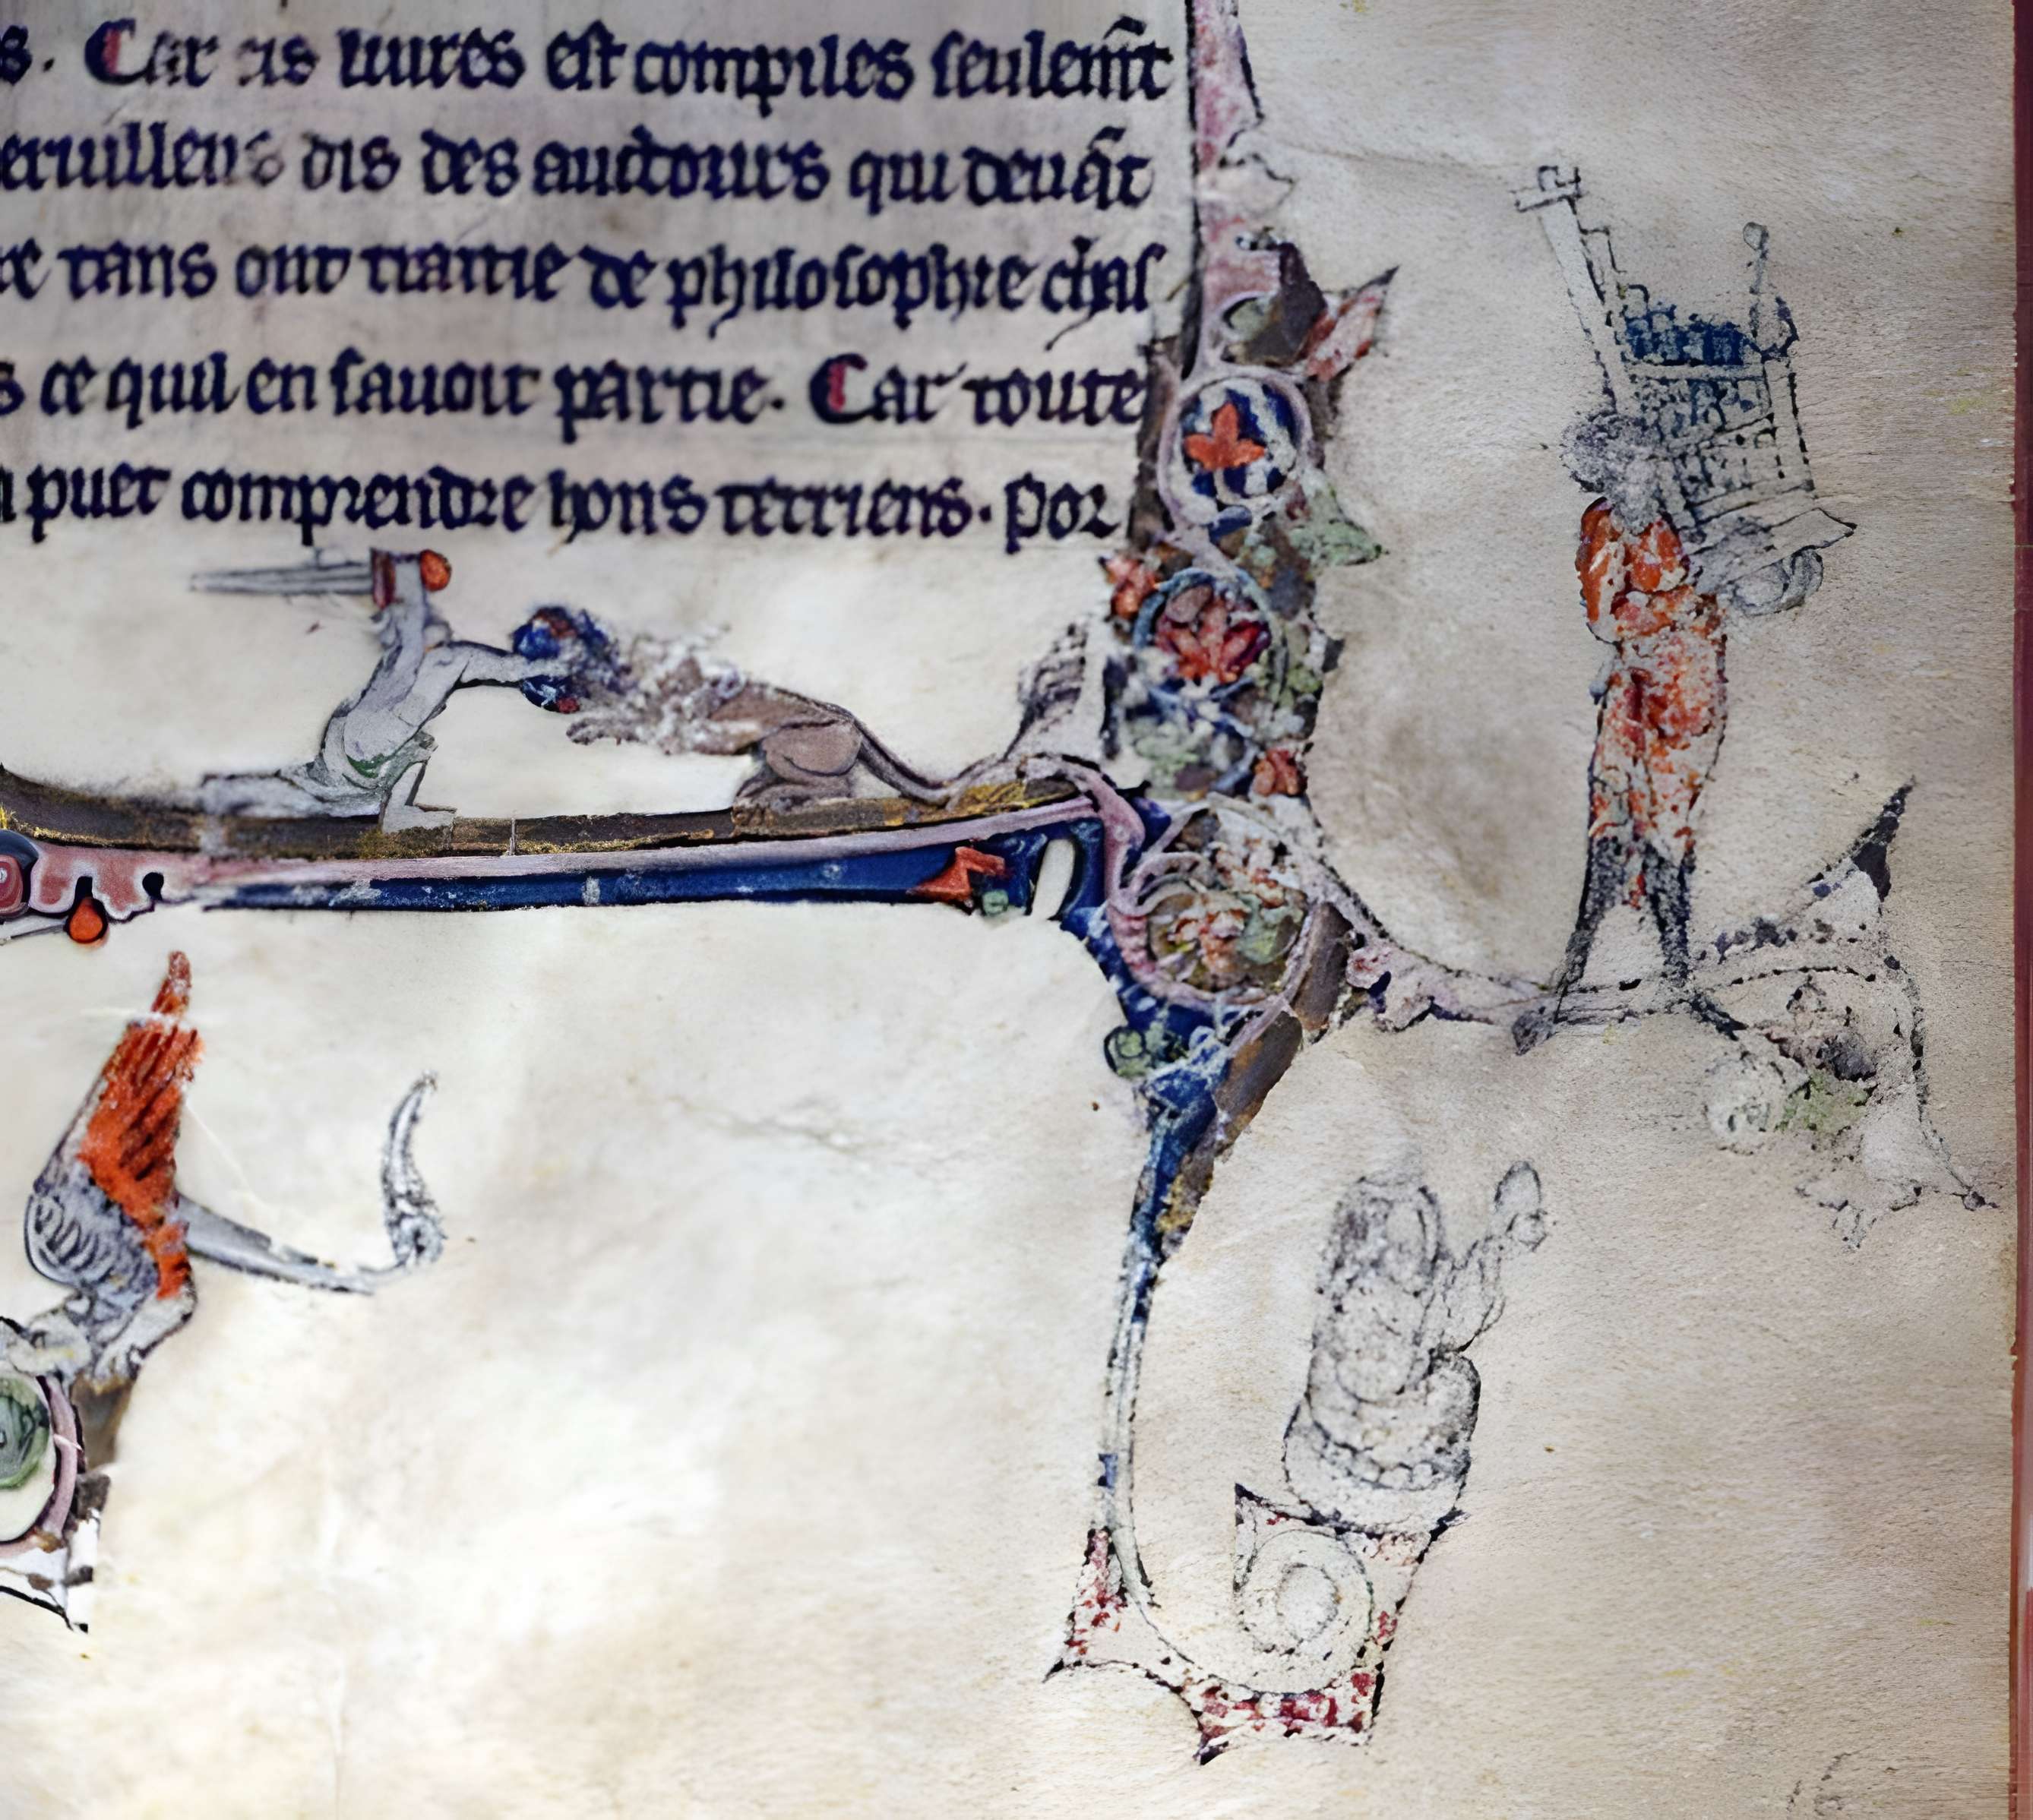 s. Car cis liures est compiles seulem̄t
eruilleus dis des auctours qui deuāt
re tans ont traitie de philosophie chas
s ce quil en sauoit partie. Car toute
n puet comprendre hons terriens. Por